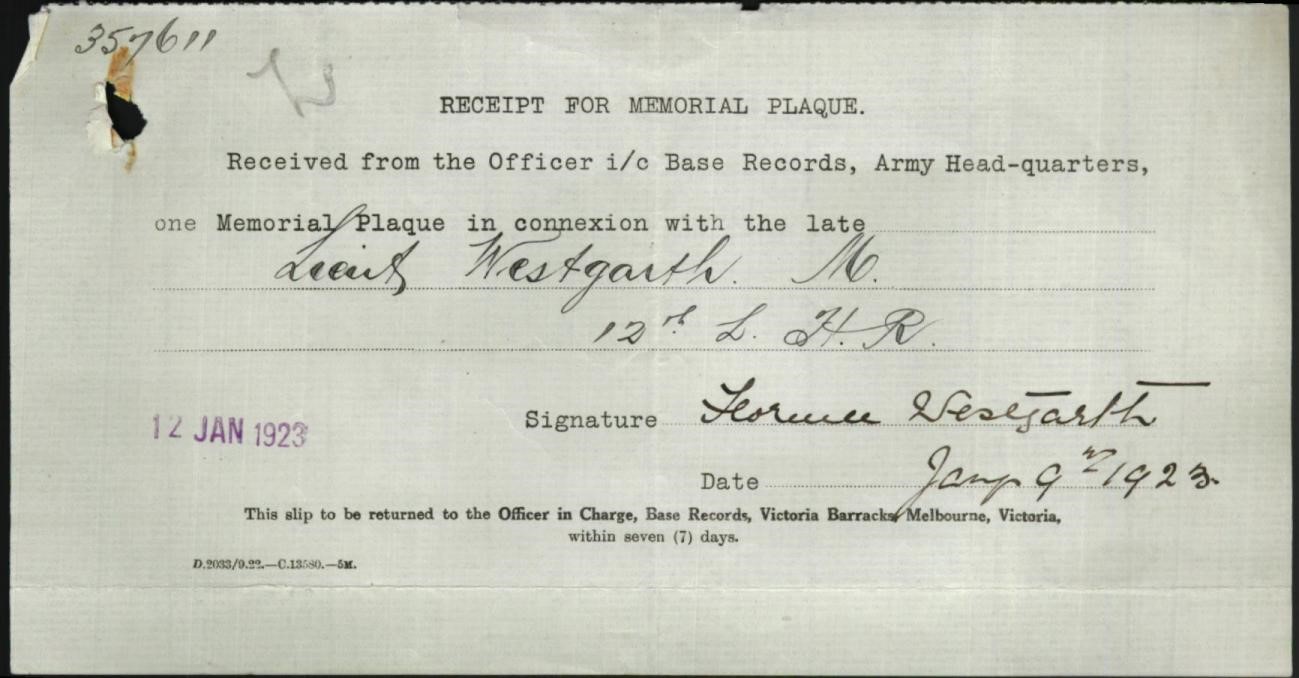 357611
RECEIPT FOR MEMORIAL PLAQUE.
Received from the Officer i/c Base Records, Army Head-quarters,
one Memorial Plaque in connexion with the late
Lieut Westgarth. M.
12th L. H. R.
12 JAN 1923
Signature Florence Westgarth
Date Jany 9th 1923
This slip to be returned to the Officer in Charge, Base Records, Victoria Barracks, Melbourne, Victoria,
within seven (7) days.
D.2033/9.22.—C.13580.—5M.